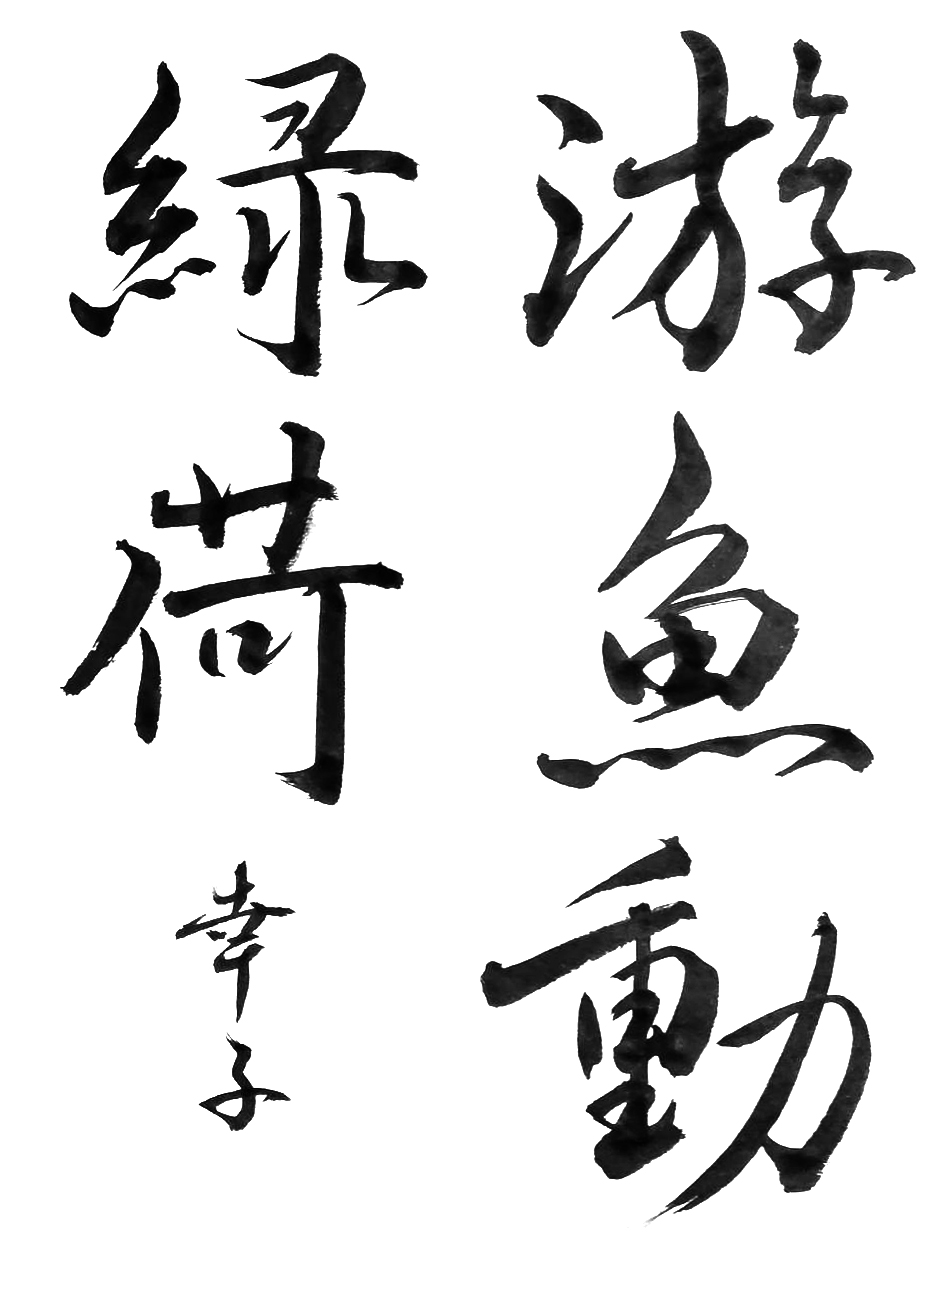 游魚動
緑荷
幸子